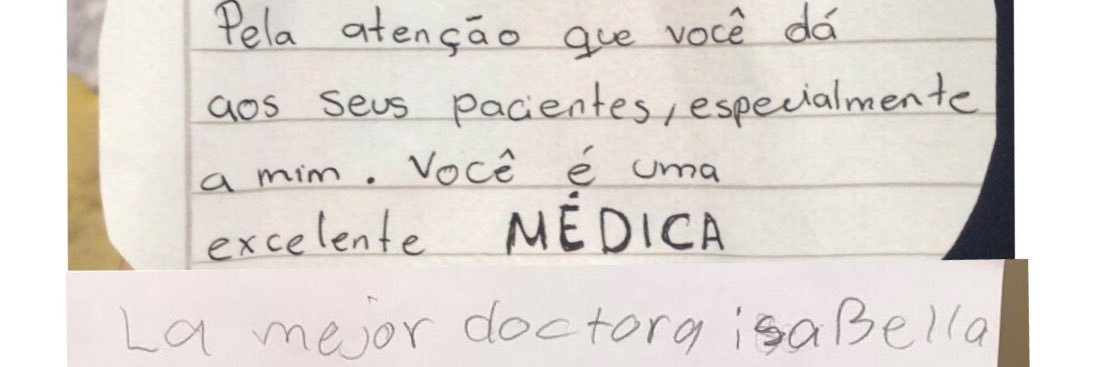 Pela atenção que você dá
aos seus pacientes, especialmente
a mim. Você é uma
excelente MÉDICA
La mejor doctora isaBella